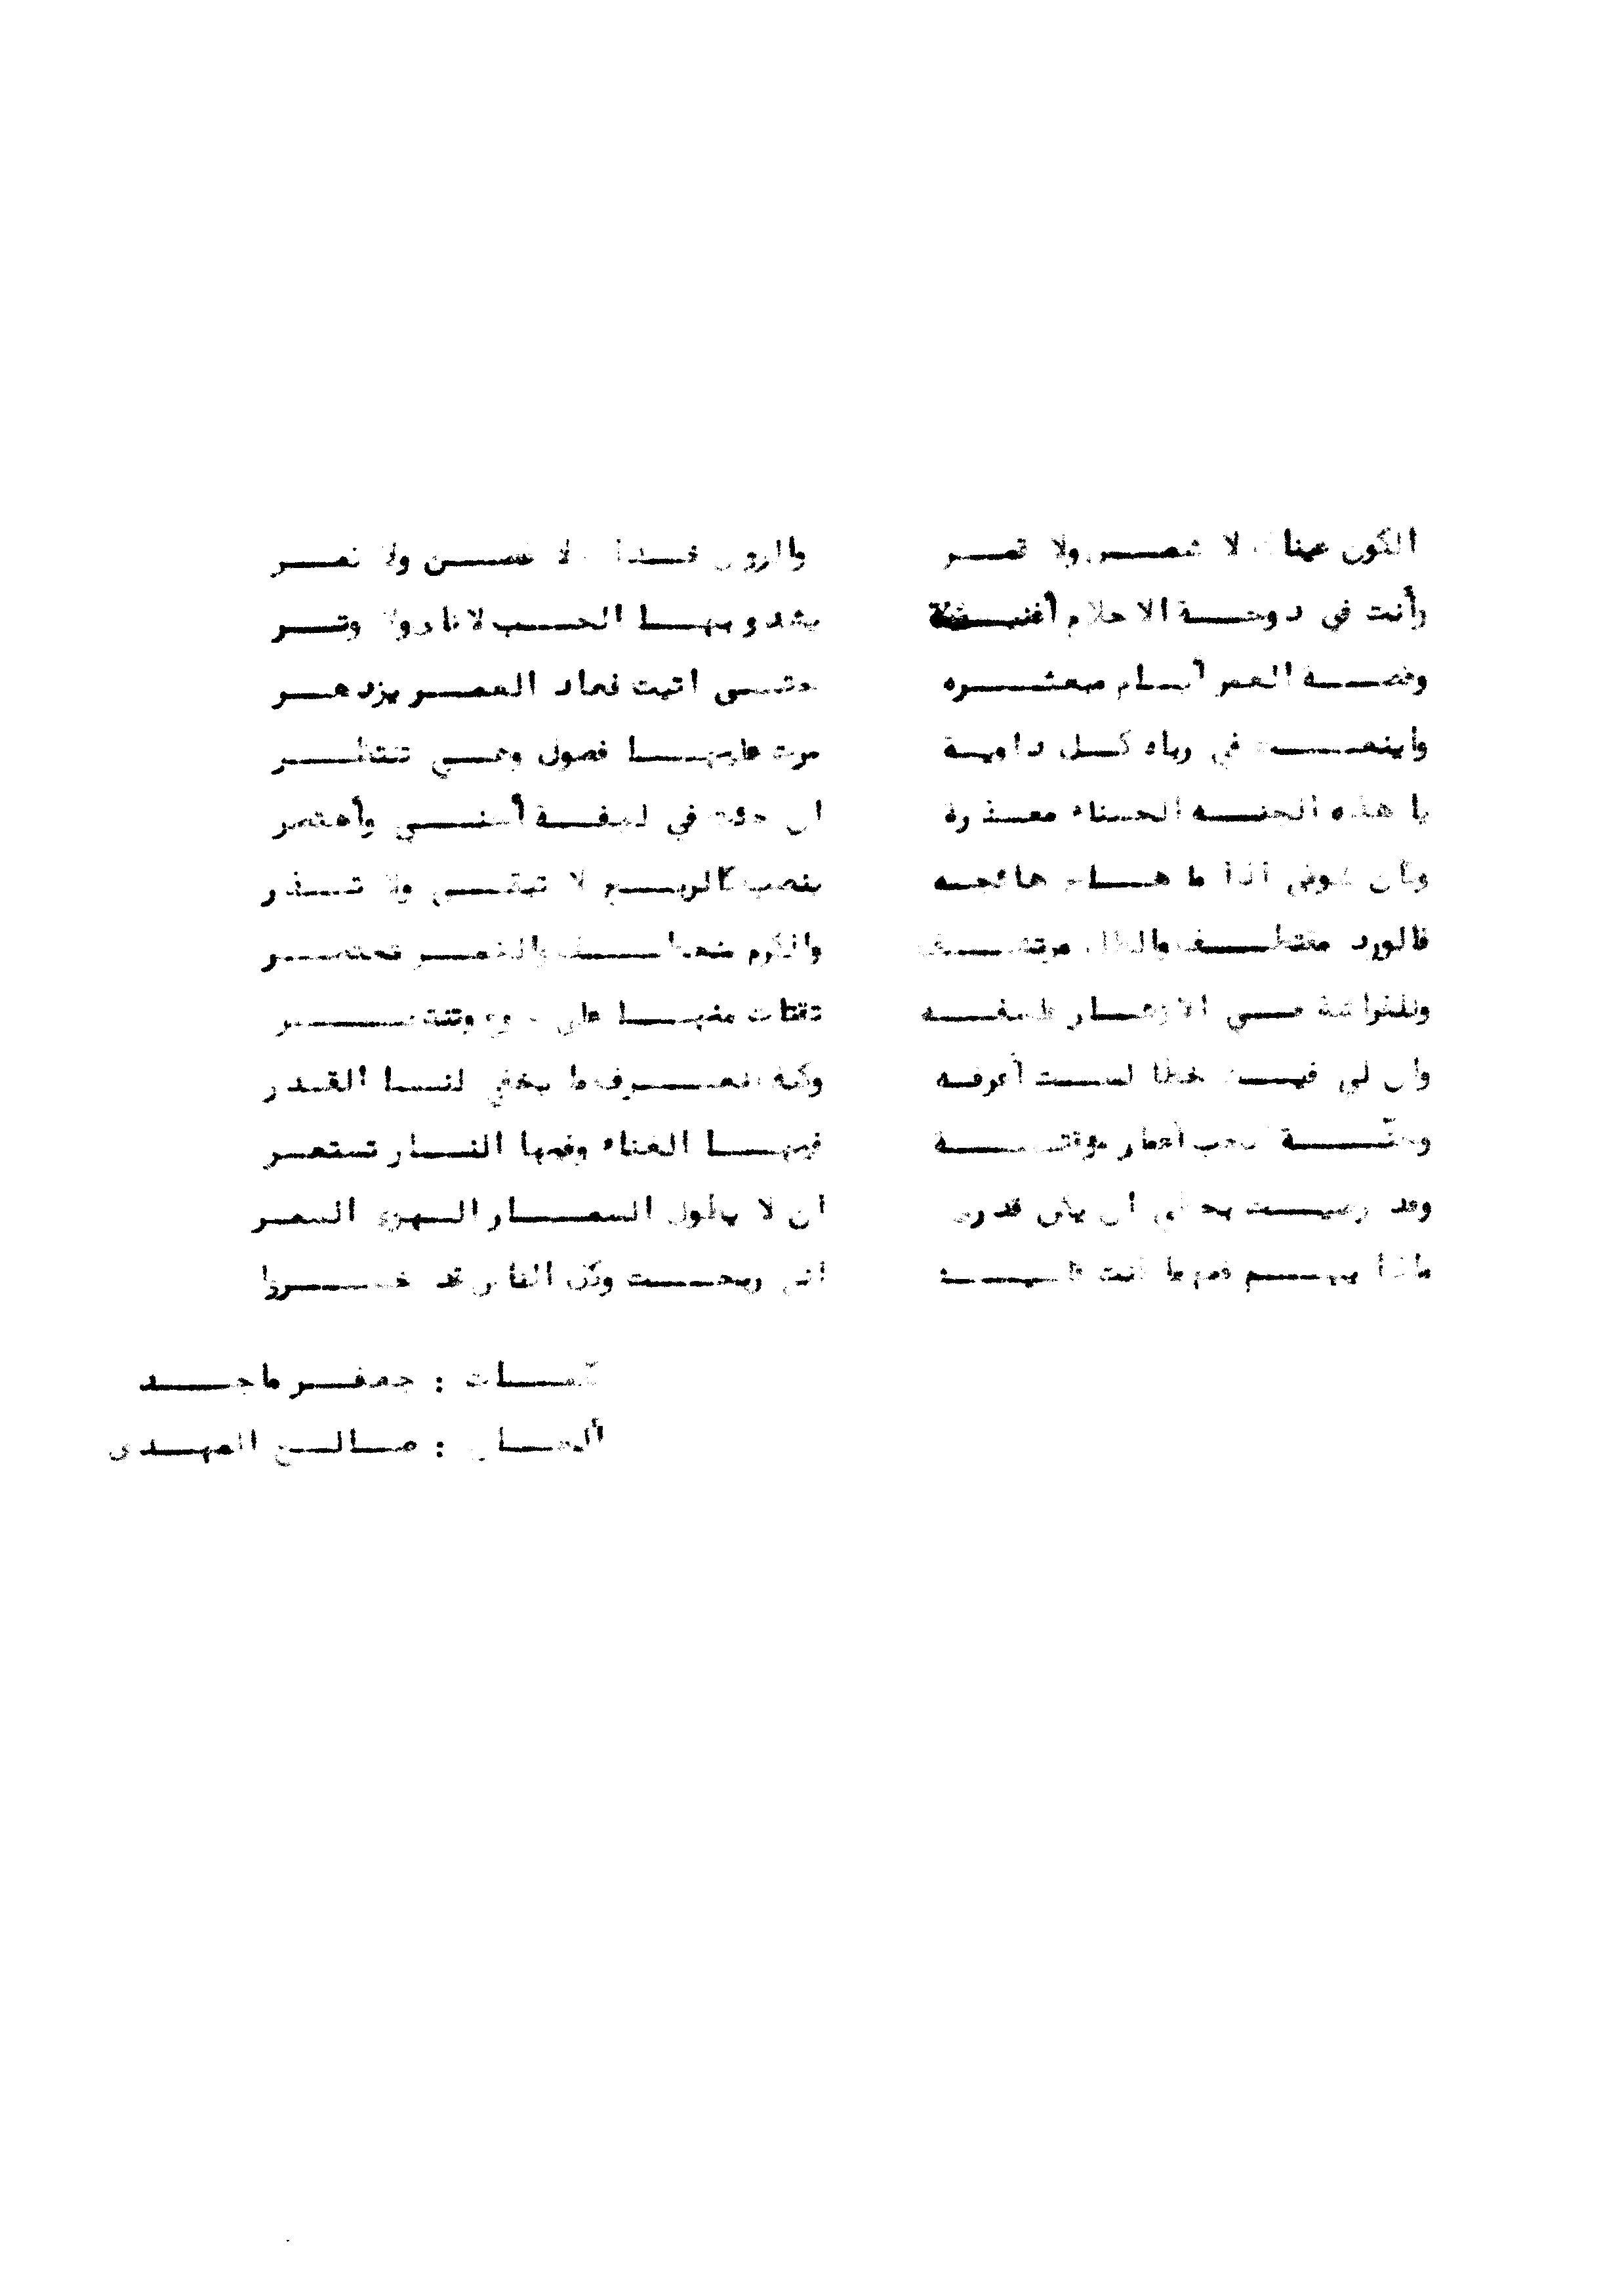 الكون عينا لا شمس ولا قمر والروض خدا لا غصن ولا ثمر
وأنت في دوحة الاحلام أغنية يشدو بها الحب لا ناي ولا وتر
وقصة العمر أيام مبعثره حتى اتيت فعاد العمر يزدهر
وأينعت في رباه كل داوية مرت عليها فصول وهي تنتظر
يا هذه الجنه الحسناء معذرة ان جئت في لهفة أجني وأهتصر
وكان شوقي اذا ما هاج هائجه ينصب كالريح لا تبقي ولا تذر
فالورد مقتطف والظل مرتشف والكرم منعطف والخمر تعتصر
وللفراشة من الازهار طبعه تقتات منها على وتنتصر
وان لي فيك خطا لست أعرفه وكيف نعرف ما يخفي لنا القدر
وجنة الحب أعطار مؤقتة فيها الغناء وفيها النار تستعر
وقد رضيت بحظي ان يكن قدري ان لا يطول السمار الهوى السمر
ماذا يهم فدم ما أنت اني ربحت وكل الناس قد خسروا
كلمات : جعفر ماجد
ألحان : صالح المهدي